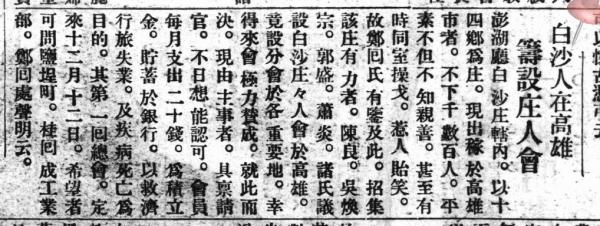 白沙人在高雄
籌設庄人會
澎湖廳白沙庄轄內。以十
四鄉為庄。現出稼於高雄
市者。不下千數百人。平
素不但不知親善。甚至有
時同室操戈。惹人貽笑。
故鄭回氏有鑒及此。招集
該庄有力者。陳良。吳煥
宗。郭盛。蕭炎。諸氏議
設白沙庄々人會於高雄
竟設分會於各重要地。幸
得來會極力贊成。就此而
決。現由主事者。具稟請
官。不日想能認可。會員
每月支出二十錢。為積立
金。貯蓄於銀行。以救濟
行旅失業。及疾病死亡為
目的。其第一回總會。定
來十二月十二日。希望者
可問鹽埕町。桂回成工業
部。鄭回處聲明云。